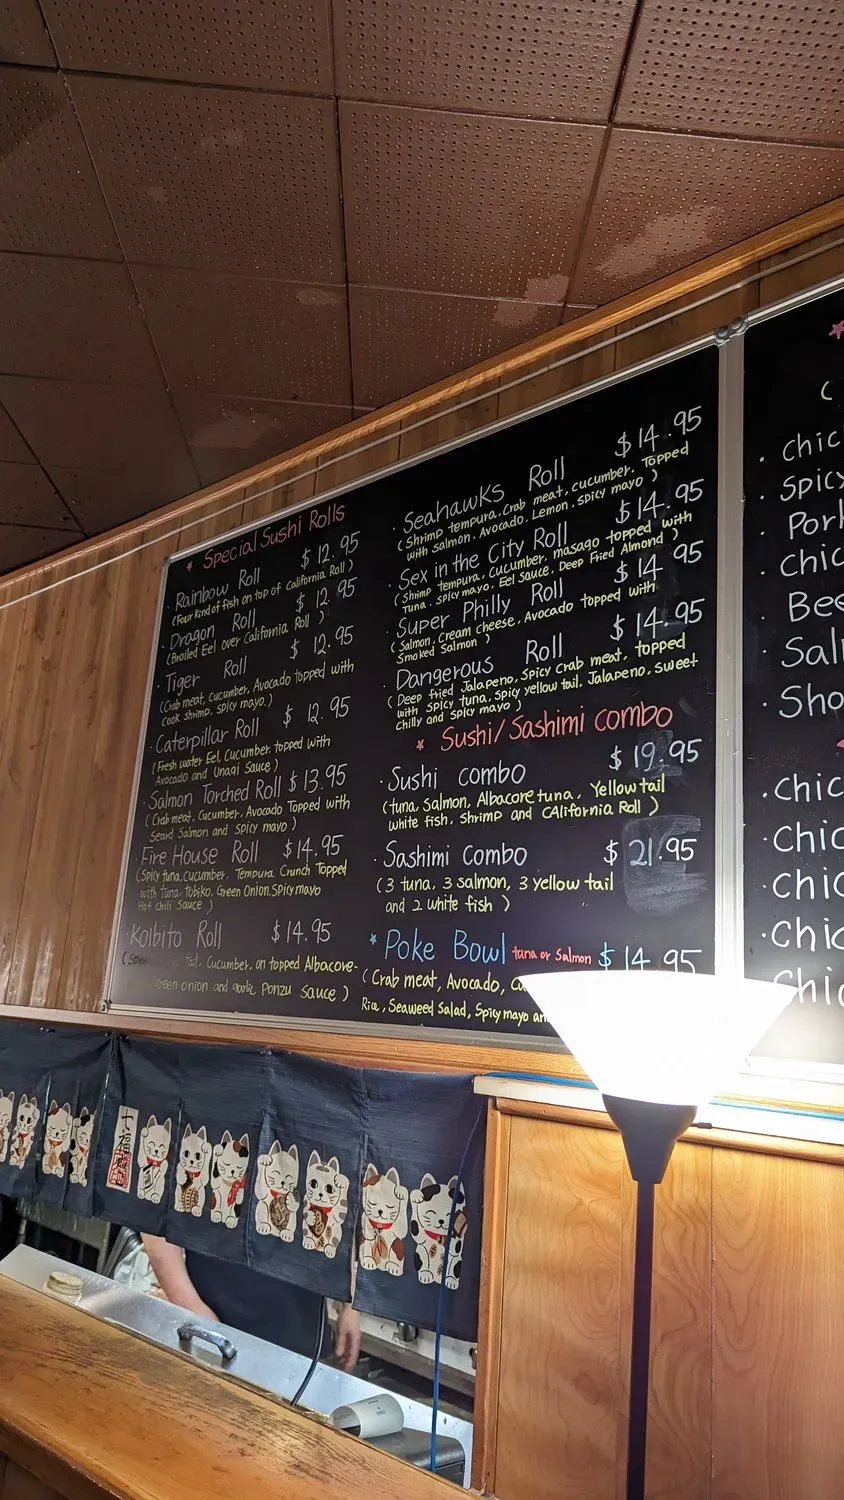 * Special Sushi Rolls
· Rainbow Roll $ 12.95
(Four kind of fish on top of California Roll)
· Dragon Roll $ 12.95
(Broiled Eel over California Roll)
· Tiger Roll $ 12.95
(Crab meat, Cucumber, Avocado topped with
cook shrimp, spicy mayo.)
· Caterpillar Roll $ 12.95
(Fresh water Eel, Cucumber topped with
Avocado and Unagi Sauce)
· Salmon Torched Roll $13.95
(Crab meat, Cucumber, Avocado Topped with
Seard Salmon and spicy mayo)
· Fire House Roll $14.95
(Spicy tuna, Cucumber, Tempura Crunch Topped
with Tuna, tobiko, Green Onion, Spicy mayo
Hot chili Sauce)
· Koibito Roll $14.95
tail, Cucumber, on topped Albacore-
green onion and garlic Ponzu Sauce)
· Seahawks Roll $14.95
(Shrimp tempura, Crab meat, cucumber, Topped
with Salmon, Avocado, Lemon, spicy mayo)
· Sex in the City Roll $14.95
(Shrimp tempura, Cucumber, masago topped with
Tuna, spicy mayo, Eel Sauce, Deep Fried Almond)
· Super Philly Roll $14.95
(Salmon, Cream Cheese, Avocado topped with
Smoked Salmon)
· Dangerous Roll $14.95
(Deep fried Jalapeno, Spicy Crab meat, topped
with spicy tuna, spicy yellow tail, Jalapeno, sweet
chilly and spicy mayo)
* Sushi/Sashimi combo
· Sushi combo $19.95
(tuna, Salmon, Albacore tuna, Yellow tail
white fish, Shrimp and CAlifornia Roll)
· Sashimi Combo $21.95
(3 tuna, 3 salmon, 3 yellow tail
and 2 white fish)
* Poke Bowl tuna or Salmon $14.95
(Crab meat, Avocado,
Rice, Seaweed Salad, Spicy mayo
(
· Chic
· Spicy
· Pork
· Chic
· Bee
· Sal
· Sho
· Chic
· Chic
· Chic
· Chic
Chi